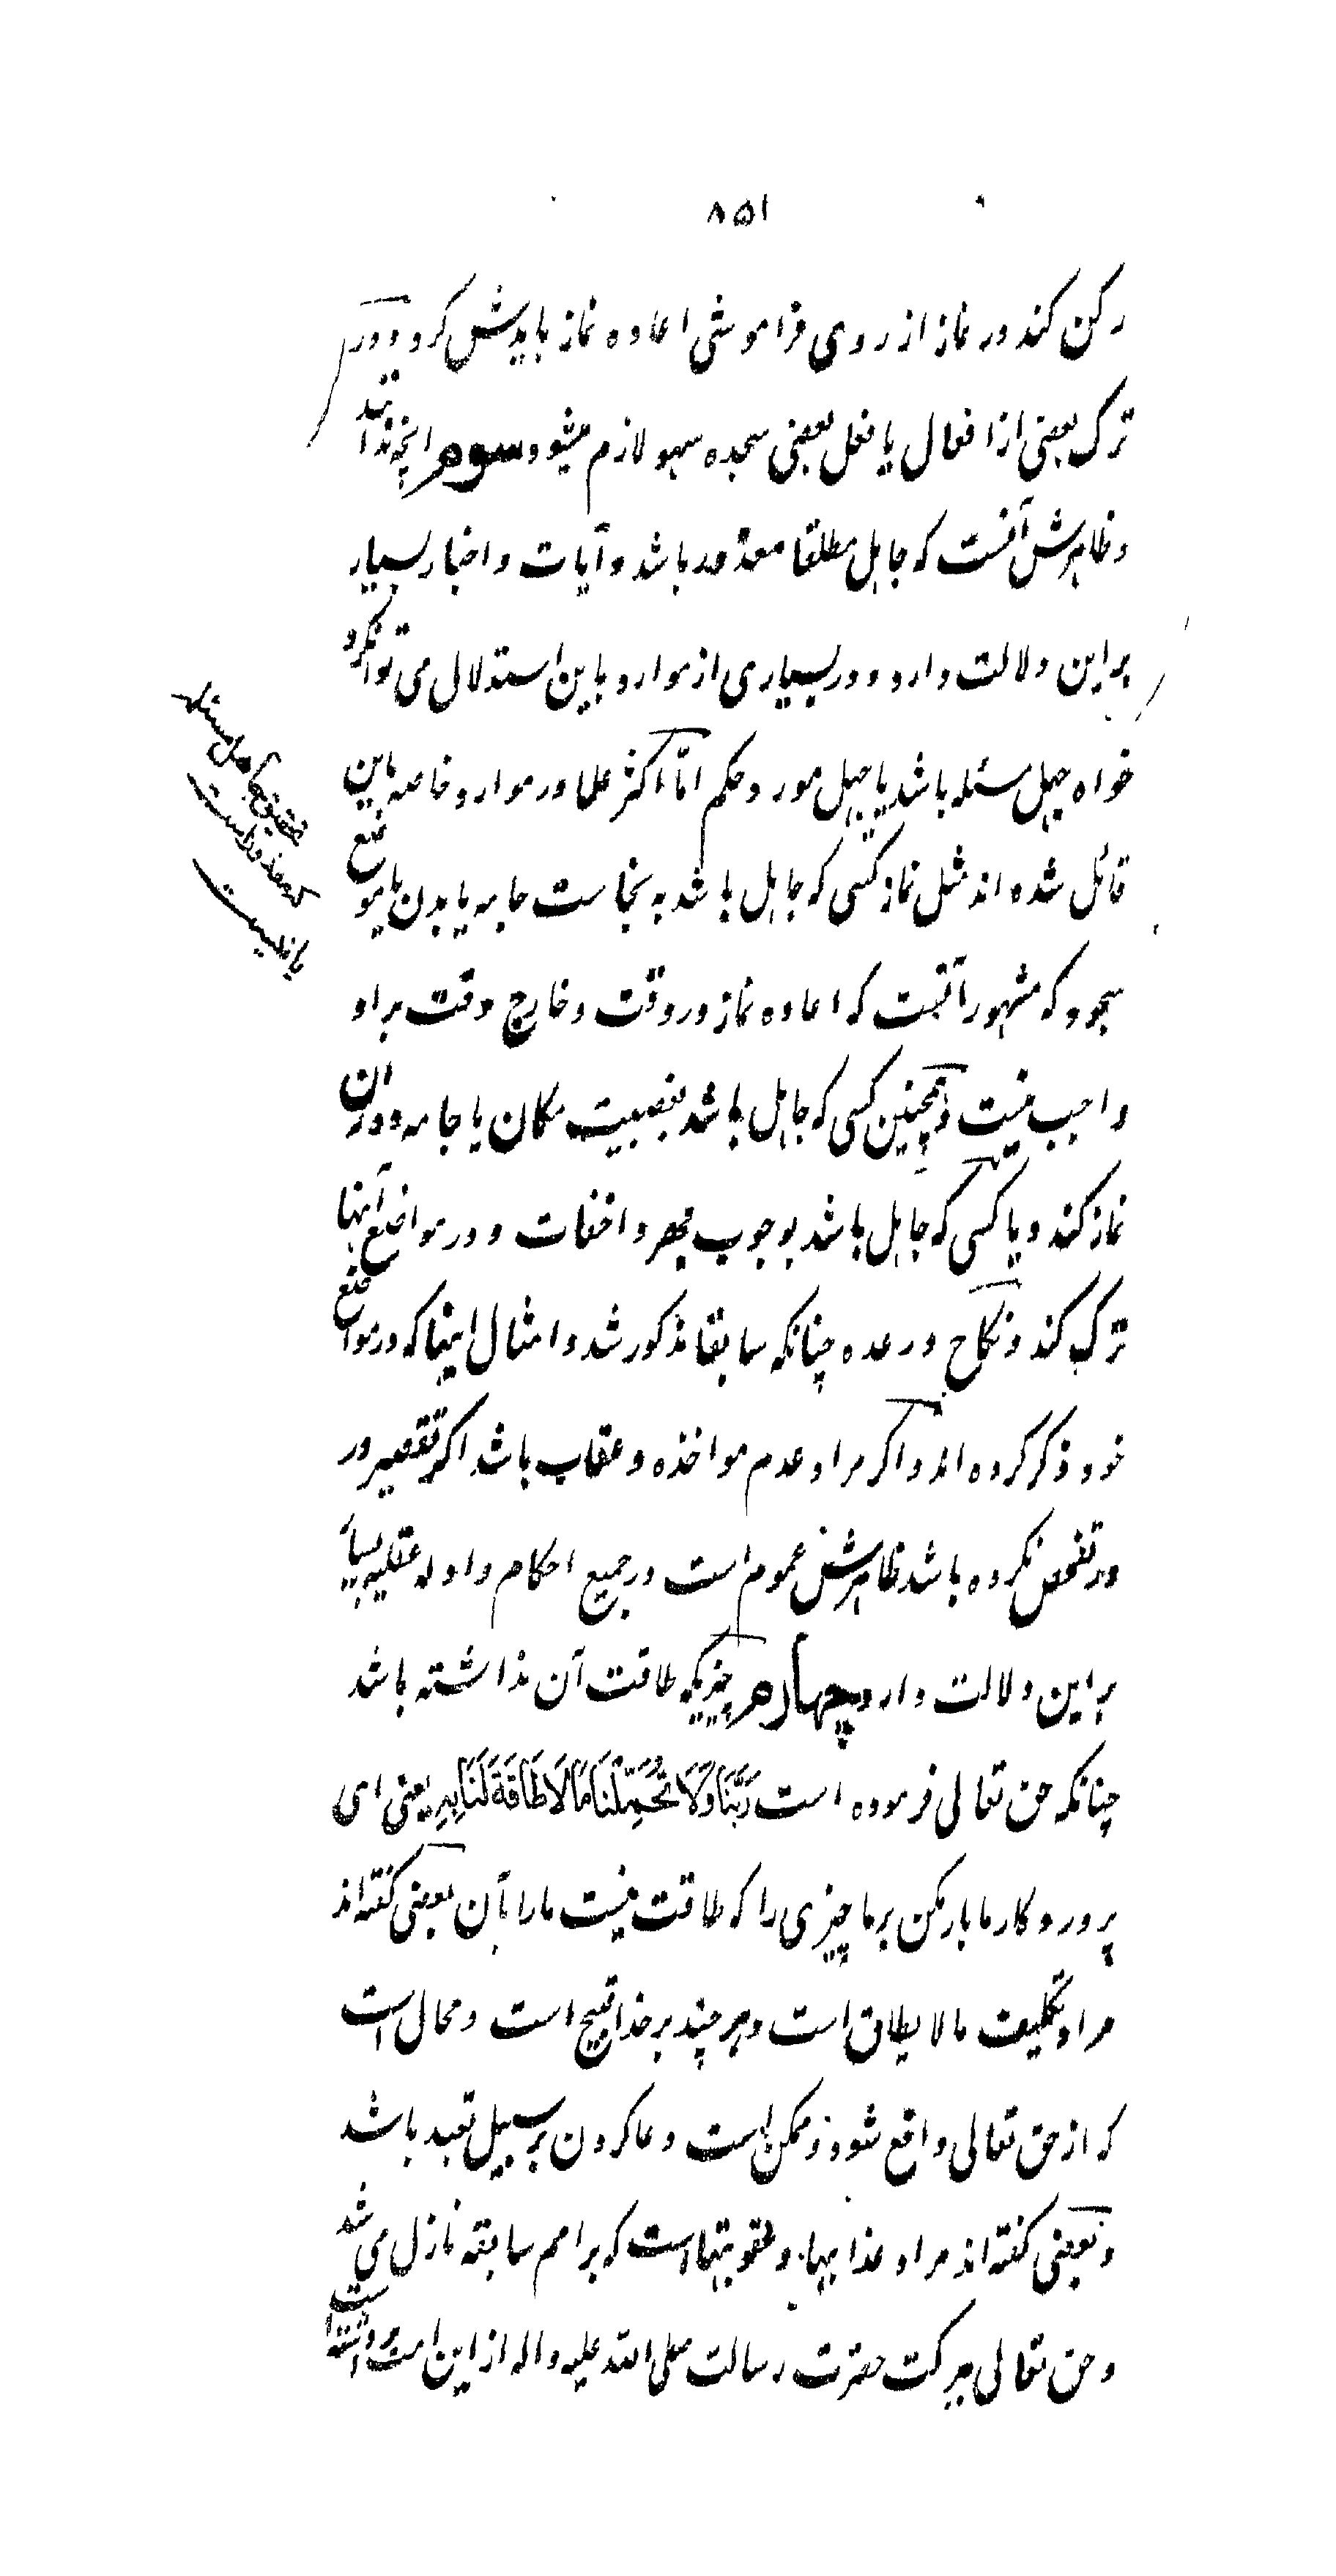 ۸۵۱
رکن کند در نماز از روی فراموشی اعاده نماز بایدش کرد و در
ترک بعضی از افعال یا فعل بعضی سجده سهو لازم میشود سوم انچه ندانند
و ظاهرش آنست که جاهل مطلقا معذور باشد و آیات و اخبار بسیار
بر این دلالت دارد و در بسیاری از موارد باین استدلال می توان کرد
خواه جهل مسئله باشد یا جهل مورد حکم امّا اکثر علما در موارد خاصه باین
قائل شده اند مثل نماز کسی که جاهل باشد به نجاست جامه یا بدن یا موضع
سجود که مشهور آنست که اعاده نماز در وقت و خارج وقت بر او
واجب نیست و همچنین کسی که جاهل باشد بغصبیت مکان یا جامه و در ان
نماز کند و یا کسی که جاهل باشد بوجوب جهر و اخفات و در مواضع آنها
ترک کند و نکاح در عده چنانکه سابقا مذکور شد و امثال اینها که در مواضع
خود ذکر کرده اند و اگر مراد عدم مواخذه و عقاب باشد اگر تقصیر در
در تفحص نکرده باشد ظاهرش عموم است در جمیع احکام و ادله عقلیه بسیار
بر این دلالت دارد چهارم چیزیکه طاقت آن نداشته باشد
چنانکه حق تعالی فرموده است رَبَّنَا وَلَا تُحَمِّلْنَا مَا لَا طَاقَةَ لَنَا بِهِ یعنی ای
پروردکار ما بار مکن بر ما چیزی را که طاقت نیست ما را بآن بعضی کفته اند
مراد تکلیف ما لا یطاق است و هر چند بر خدا قبیح است و محال است
که از حق تعالی واقع شود و ممکن است دعا کردن بر سبیل تعبد باشد
و بعضی کفته اند مراد عذابها و عقوبتها است که بر امم سابقه نازل می شد
و حق تعالی ببرکت حضرت رسالت صلی الله علیه و اله از این امت برداشته است
جاهل مسئله
که معذور است
یا نیست